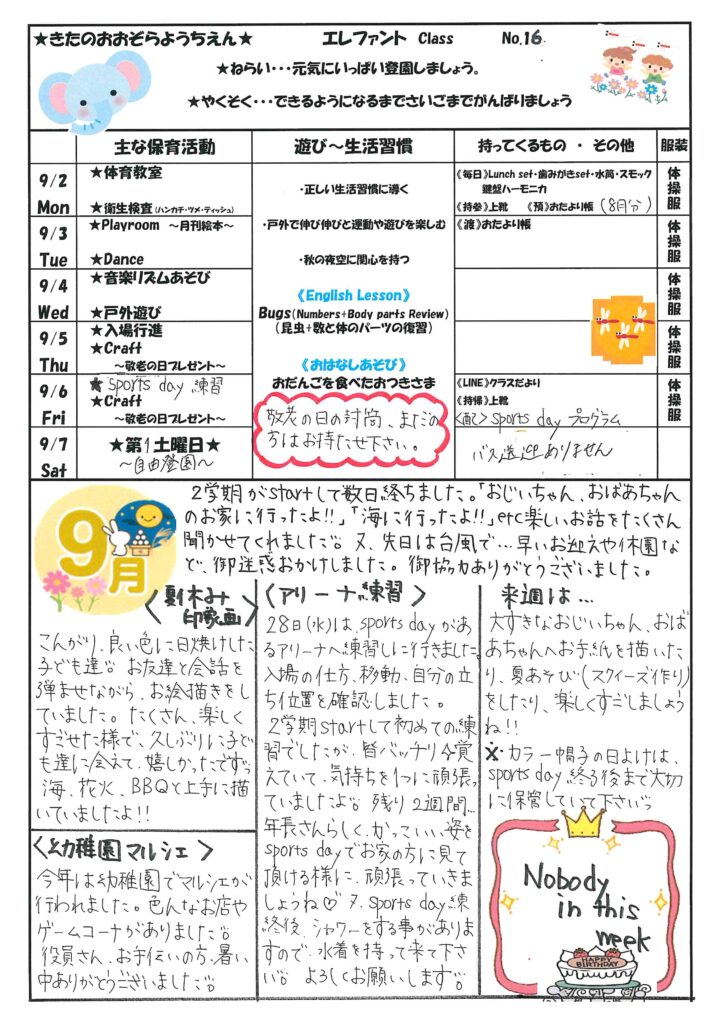 ★きたのおおぞらようちえん★ エレファント Class No.16
★ねらい・・・元気にいっぱい登園しましょう。
★やくそく・・・できるようになるまでさいごまでがんばりましょう
主な保育活動 遊び～生活習慣 持ってくるもの ・ その他 服装
9/2 Mon
★体育教室
★衛生検査(ハンカチ・ツメ・ティッシュ)
9/3 Tue
★Playroom ～月刊絵本～
★Dance
9/4 Wed
★音楽リズムあそび
★戸外遊び
9/5 Thu
★入場行進
★Craft
～敬老の日プレゼント～
9/6 Fri
★sports day 練習
★Craft
～敬老の日プレゼント～
9/7 Sat
★第1土曜日★
～自由登園～
・正しい生活習慣に導く
・戸外で伸び伸びと運動や遊びを楽しむ
・秋の夜空に関心を持つ
《English Lesson》
Bugs(Numbers+Body parts Review)
(昆虫+数と体のパーツの復習)
《おはなしあそび》
おだんごを食べたおつきさま
敬老の日の封筒、まだの
方はお持たせ下さい。
《毎日》Lunch set・歯みがきset・水筒・スモック
鍵盤ハーモニカ
《持参》上靴 《預》おたより帳 (8月分)
《渡》おたより帳
《LINE》クラスだより
《持帰》上靴
<配>sports day プログラム
バス送迎ありません
体操服
体操服
体操服
体操服
体操服
9月
2学期がstartして数日経ちました。「おじいちゃん、おばあちゃん
のお家に行ったよ!!」「海に行ったよ!!」etc楽しいお話をたくさん
聞かせてくれました。又、先日は台風で…早いお迎えや休園な
ど、御迷惑おかけしました。御協力ありがとうございました。
<夏休み印象画>
こんがり、良い色に日焼けした
子ども達。お友達と会話を
弾ませながら、お絵描きをし
ていました。たくさん、楽しく
すごせた様で、久しぶりに子ど
も達に会えて、嬉しかったです。
海、花火、BBQと上手に描
いていましたよ!!
<幼稚園マルシェ>
今年は幼稚園でマルシェが
行われました。色んなお店や
ゲームコーナがありました。
役員さん、お手伝いの方、暑い
中ありがとうございました。
<アリーナ練習>
28日(水)は sports dayがあ
るアリーナへ練習しに行きました。
入場の仕方、移動、自分の立
ち位置を確認しました。
2学期startして初めての練
習でしたが、皆バッチリ覚
えていて、気持ちを1つに頑張っ
ていましたよ。残り2週間、
年長さんらしく、かっこいい姿を
sports dayでお家の方に見て
頂ける様に、頑張っていきま
しょうね♡ 又、sports day練習
終後、シャワーをする事がありま
すので、水着を持って来て下さ
い。よろしくお願いします。
来週は…
大すきなおじいちゃん、おば
あちゃんへお手紙を描いた
り、夏あそび(スクイーズ作り)
をしたり、楽しくすごしましょう
ね!!
※カラー帽子の日よけは、
sports day 終る後まで大切
に保管していて下さい。
Nobody
in this
week
HAPPY BIRTHDAY